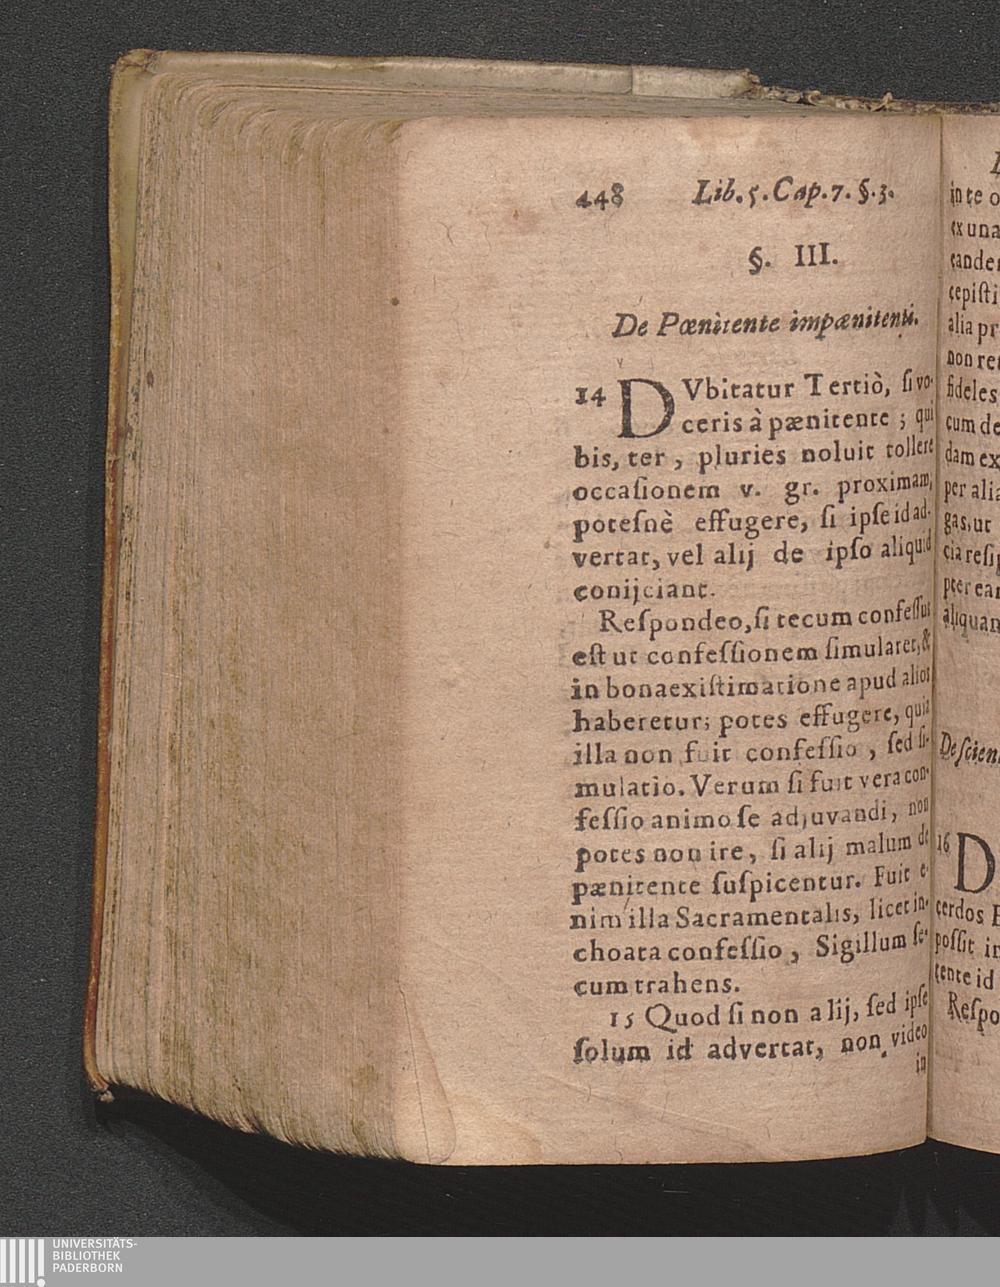 448 Lib. 5. Cap. 7. §. 3.
§. III.
De Pœnitente impænitenti.
14 DVbitatur Tertiò, ſi vo-
ceris à pænitente ; qui
bis, ter , pluries noluit tollere
occaſionem v. gr. proximam,
poteſnè effugere, ſi ipſe id ad-
vertat, vel alij de ipſo aliquid
conijciant.
Reſpondeo, ſi tecum confeſſus
eſt ut confeſſionem ſimularet, &
in bona exiſtimatione apud alios
haberetur; potes effugere, quia
illa non fuit confeſſio , ſed ſi-
mulatio. Verum ſi fuit vera con-
feſſio animo ſe adjuvandi, non
potes non ire, ſi alij malum de
pænitente ſuſpicentur. Fuit e-
nim illa Sacramentalis, licet in-
choata confeſſio , Sigillum ſe-
cum trahens.
15 Quod ſi non alij, ſed ipſe
ſolum id advertat, non video
in
in te o
ex una
cande
cepiſti
alia pr
non ret
fideles
cum de
dam ex
per alia
gas, ut
cia reſip
pter ear
aliquan
De ſcien
16 D
cerdos
poſſit in
tente id
Reſpo
UNIVERSITÄTS-
BIBLIOTHEK
PADERBORN